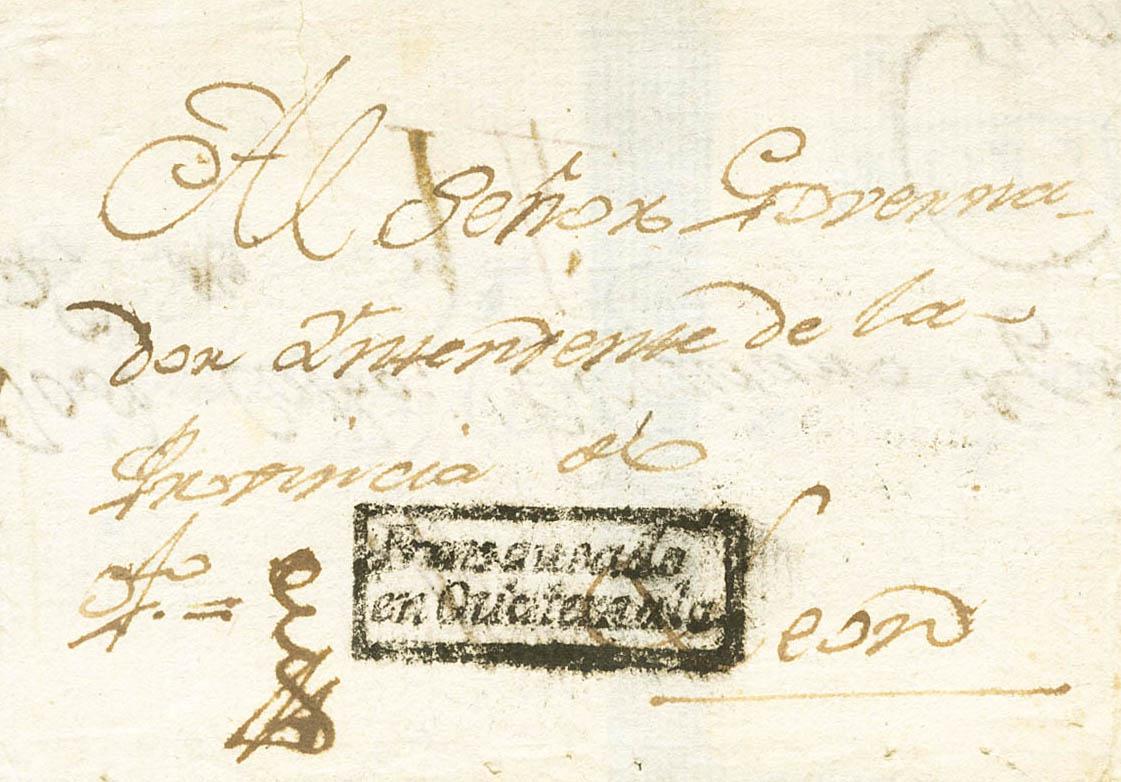 Al Señor Governa-
dor Yntendente de la
Provincia de
Franqueado
en Quezaltenango
Leon